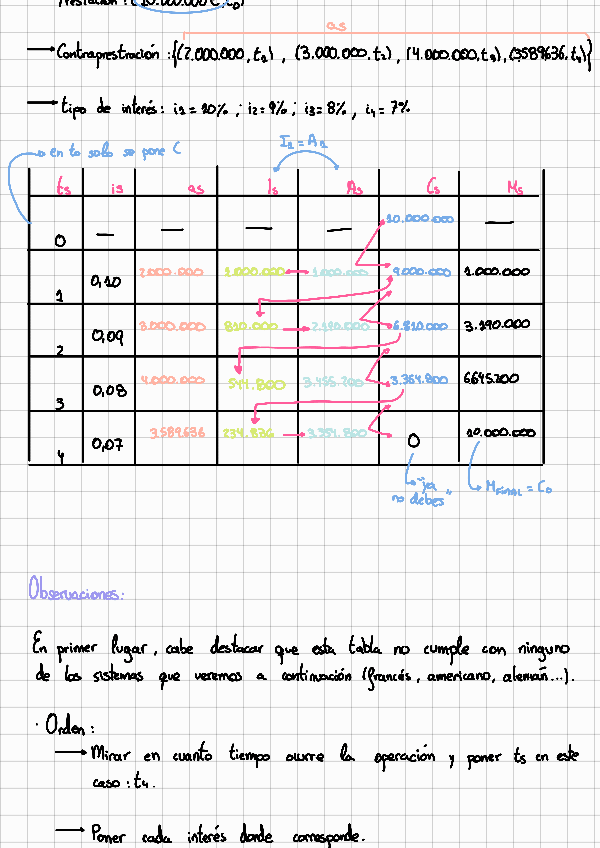 Prestación : (10.000.000 €, t₀)
as
→ Contraprestación : {(2.000.000, t₁) , (3.000.000, t₂) , (4.000.000, t₃) , (3589636, t₄)}
→ tipo de interés : i₁ = 10% ; i₂ = 9% ; i₃ = 8% , i₄ = 7%
en t₀ solo se pone C
ts is as Is As Cs Ms
0 — — — — 10.000.000 —
1 0,10 2.000.000 1.000.000 1.000.000 9.000.000 1.000.000
2 0,09 3.000.000 810.000 2.190.000 6.810.000 3.190.000
3 0,08 4.000.000 544.800 3.455.200 3.354.800 6645.200
4 0,07 3.589.636 234.836 3.354.800 0 10.000.000
"ya no debes"
M FINAL = C₀
Observaciones:
En primer lugar, cabe destacar que esta tabla no cumple con ninguno
de los sistemas que veremos a continuación (francés, americano, alemán...).
· Orden :
→ Mirar en cuanto tiempo ourre la operación y poner ts en este
caso : t₄.
→ Poner cada interés donde corresponde.